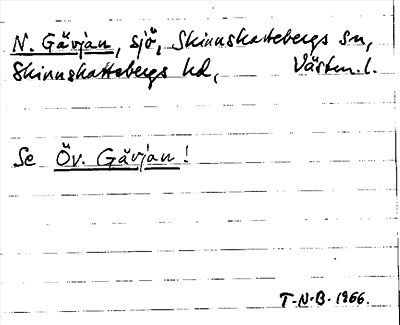 N. Gävjan, sjö, Skinnskattebergs sn,
Skinnskattebergs hd, Västm.l.
Se Öv. Gävjan!
T-N-B-1966.